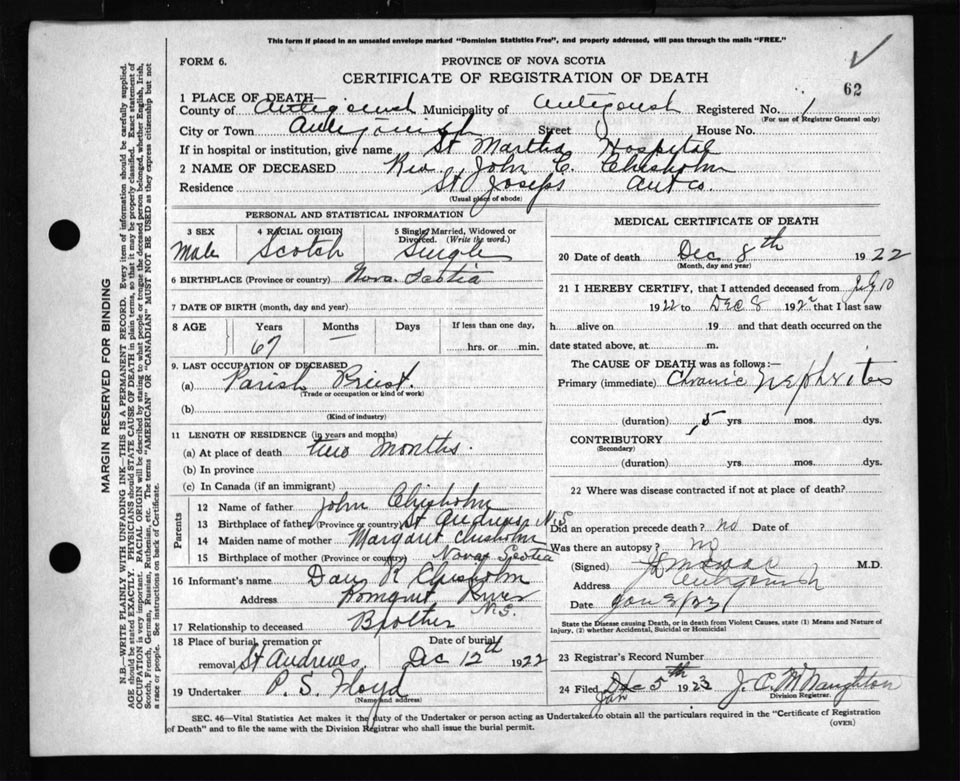 This form if placed in an unsealed envelope marked "Dominion Statistics Free", and properly addressed, will pass through the mails "FREE."
FORM 6.
PROVINCE OF NOVA SCOTIA
CERTIFICATE OF REGISTRATION OF DEATH
62
1 PLACE OF DEATH—
County of Antigonish Municipality of Antigonish Registered No. 1
(For use of Registrar General only)
City or Town Antigonish Street House No.
If in hospital or institution, give name St Marthas Hospital
2 NAME OF DECEASED Rev John C. Chisholm
Residence St Josephs Ant Co
(Usual place of abode)
PERSONAL AND STATISTICAL INFORMATION
3 SEX 4 RACIAL ORIGIN 5 Single, Married, Widowed or Divorced. (Write the word.)
Male Scotch Single
6 BIRTHPLACE (Province or Country) Nova Scotia
7 DATE OF BIRTH (month, day and year)
8 AGE Years Months Days If less than one day,
67 — hrs. or min.
9. LAST OCCUPATION OF DECEASED
(a) Parish Priest.
(Trade or occupation or kind of work)
(b)
(Kind of industry)
11 LENGTH OF RESIDENCE (in years and months)
(a) At place of death two months.
(b) In province
(c) In Canada (if an immigrant)
Parents
12 Name of father John Chisholm
13 Birthplace of father (Province or country) St Andrews N.S
14 Maiden name of mother Margaret Chisholm
15 Birthplace of mother (Province or country) Nova Scotia
16 Informant's name Dan R Chisholm
Address Pomquet River N.S.
17 Relationship to deceased Brother
18 Place of burial, cremation or removal St Andrews Date of burial Dec 12th 1922
19 Undertaker P. S. Floyd
(Name and address)
MEDICAL CERTIFICATE OF DEATH
20 Date of death Dec 8th 1922
(Month, day and year)
21 I HEREBY CERTIFY, that I attended deceased from July 10
1922 to DEC 8 1922 that I last saw
h alive on 19 and that death occurred on the
date stated above, at m.
The CAUSE OF DEATH was as follows:—
Primary (immediate) Chronic Nephritis
(duration) 5 yrs mos. dys.
CONTRIBUTORY
(Secondary)
(duration) yrs. mos. dys.
22 Where was disease contracted if not at place of death?
Did an operation precede death? no Date of
Was there an autopsy? no
(Signed) M.D.
Address Antigonish
Date Jan 3/23
State the Disease causing Death, or in death from Violent Causes, state (1) Means and Nature of Injury, (2) whether Accidental, Suicidal or Homicidal
23 Registrar's Record Number
24 Filed Dec Jan 5th 1923 J. C. McNaughton
Division Registrar.
SEC. 46—Vital Statistics Act makes it the duty of the Undertaker or person acting as Undertaker to obtain all the particulars required in the "Certificate of Registration
of Death" and to file the same with the Division Registrar who shall issue the burial permit.
(OVER)
MARGIN RESERVED FOR BINDING
N.B.—WRITE PLAINLY WITH UNFADING INK—THIS IS A PERMANENT RECORD. Every item of information should be carefully supplied.
AGE should be stated EXACTLY. PHYSICIANS should STATE CAUSE OF DEATH in plain terms, so that it may be properly classified. Exact statement of
OCCUPATION is very important. RACIAL ORIGIN will be described by stating to what people or tongue the deceased person belonged, whether English, Irish,
Scotch, French, German, Russian, Ruthenian, etc. The terms "AMERICAN" OR "CANADIAN" MUST NOT BE USED as they express citizenship but not
a race or people. See instructions on back of Certificate.